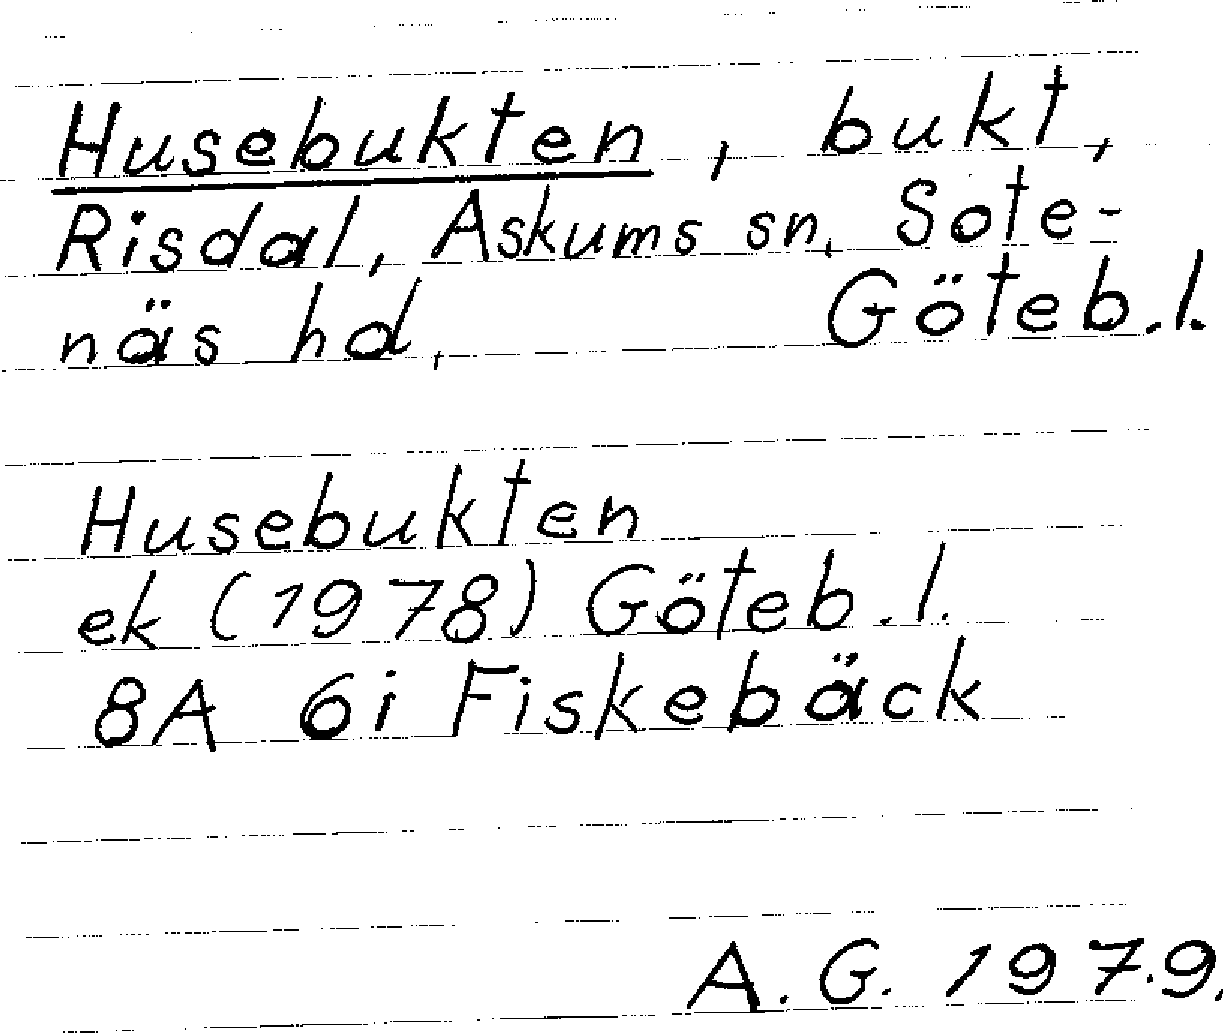 Husebukten, bukt,
Risdal, Askums sn, Sote-
näs hd, Göteb.l.
Husebukten
ek (1978) Göteb.l.
8A 6i Fiskebäck
A.G. 1979.